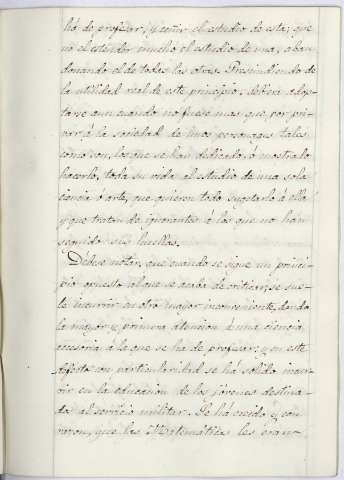 há de profesar, y ceñir el estudio de esta; que
no el estender mucho el estudio de una, aban-
donando el de todas las otras. Prescindiendo de
la utilidad real de este principio, debiera adop-
tarse aun cuando no fuese mas que por pri-
var á la sociedad de unos personages tales
como son, los que se han dedicado ó mostrado
hacerlo, toda su vida al estudio de una sola
ciencia ó arte, que quieren todo sugetarlo á ella
y que tratan de ignorantes á los que no han
seguido sus huellas.
Débese notar, que cuando se sigue un princi-
pio opuesto al que se acaba de criticar, se sue-
le incurrir en otro mayor inconveniente, dando
la mayor y primera atencion á una ciencia
accesoria á la que se ha de profesar; y en este
defecto en particularidad se há solido incur-
rir en la educacion de los jóvenes destina-
dos al servicio militar. Se há creido y con
razon, que las Matematicas les eran